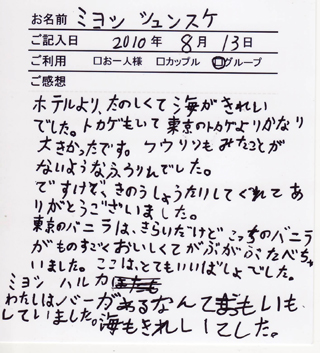 お名前 ミヨシ シュンスケ
ご記入日 2010年 8月 13日
ご利用 □お一人様 □カップル □グループ
ご感想
ホテルより、たのしくて海がきれい
でした。トカゲもいて東京のトカゲよりかなり
大きかったです。
もみたことが
ないような
でした。
ですけど、きのうしょうたいしてくれてあ
りがとうございました。
東京のバニラは、きらいだけどこっちのバニラ
がものすごくおいしくてがぶがぶたべちゃ
いました。ここは、とてもいいばしょでした。
ミヨシ ハルカ
わたしはバーがあるなんて
していました。海もきれいでした。